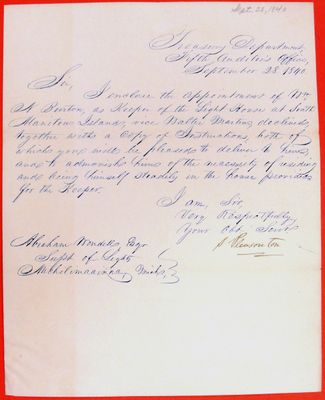 Sept. 28, 1840
Treasury Department,
Fifth Auditor's Office,
September 28. 1840.
Sir,
I enclose the appointment of Wm
N. Burton, as Keeper of the Light House at South
Manitou Island, vice Walter Martin declined,
together with a Copy of Instructions, both of
which you will be pleased to deliver to him,
and to admonish him of the necessity of residing
and being himself steadily in the house provided
for the Keeper.
I am, Sir,
Very Respectfully,
Your Obt Servt
S. Pleasonton
Abraham Wendell, Esqr
Supt of Lights
Michilimackinac, Mich.